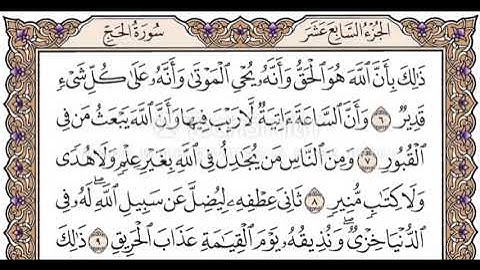 الجزء السابع عشر
سورة الحج
ذَٰلِكَ بِأَنَّ ٱللَّهَ هُوَ ٱلۡحَقُّ وَأَنَّهُۥ يُحۡيِ ٱلۡمَوۡتَىٰ وَأَنَّهُۥ عَلَىٰ كُلِّ شَيۡءٖ
قَدِيرٞ ٦ وَأَنَّ ٱلسَّاعَةَ ءَاتِيَةٞ لَّا رَيۡبَ فِيهَا وَأَنَّ ٱللَّهَ يَبۡعَثُ مَن فِي
ٱلۡقُبُورِ ٧ وَمِنَ ٱلنَّاسِ مَن يُجَٰدِلُ فِي ٱللَّهِ بِغَيۡرِ عِلۡمٖ وَلَا هُدٗى
وَلَا كِتَٰبٖ مُّنِيرٖ ٨ ثَانِيَ عِطۡفِهِۦ لِيُضِلَّ عَن سَبِيلِ ٱللَّهِۖ لَهُۥ فِي
ٱلدُّنۡيَا خِزۡيٞۖ وَنُذِيقُهُۥ يَوۡمَ ٱلۡقِيَٰمَةِ عَذَابَ ٱلۡحَرِيقِ ٩ ذَٰلِكَ